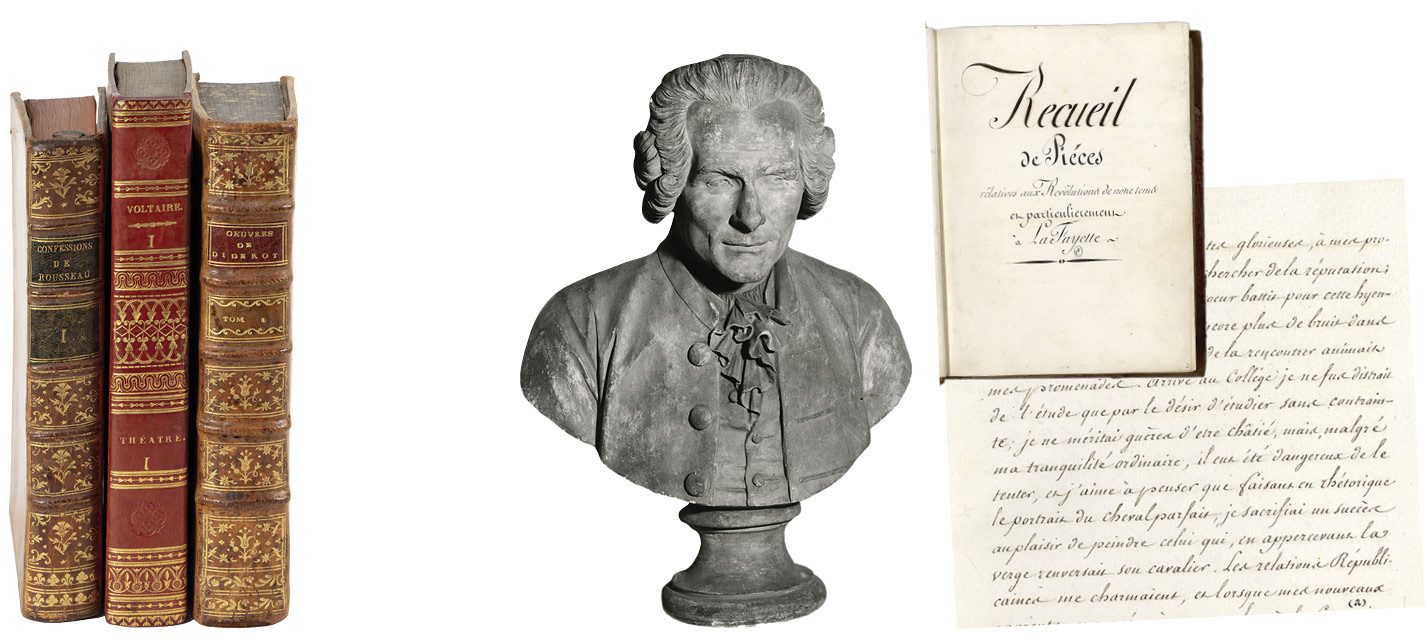 CONFESSIONS
DE
ROUSSEAU
I
VOLTAIRE.
I
THÉATRE.
I
OEUVRES
DE
DIDEROT
TOM I
Recueil
de Piéces
rélatives aux Révolutions de notre tems
et particulierement
à La Fayette
tes glorieuses, à mes pro-
chercher de la réputation;
coeur battit pour cette hyen-
core plus de bruit dans
de la rencontrer animait
mes promenades. Arrivé au Collége je ne fus distrait
de l'étude que par le désir d'étudier sans contrain-
te; je ne méritai guères d'etre châtié, mais, malgré
ma tranquilité ordinaire, il eut été dangereux de le
tenter, et j'aime à penser que faisant en rhétorique
le portrait du cheval parfait, je sacrifiai un succès
au plaisir de peindre celui qui, en appercevant la
verge renversait son cavalier. Les relations Républi-
caines me charmaient, et lorsque mes nouveaux
(a)